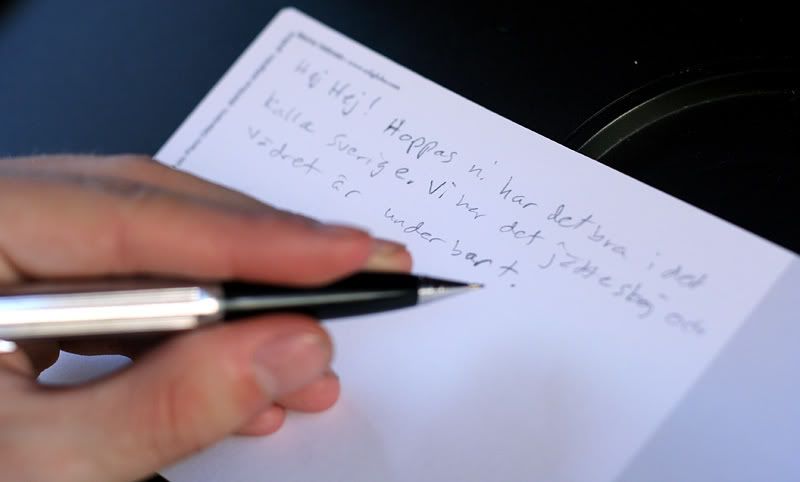 Hej Hej! Hoppas ni har det bra i det
kalla Sverige. Vi har det jätteskoj och
vädret är underbart.